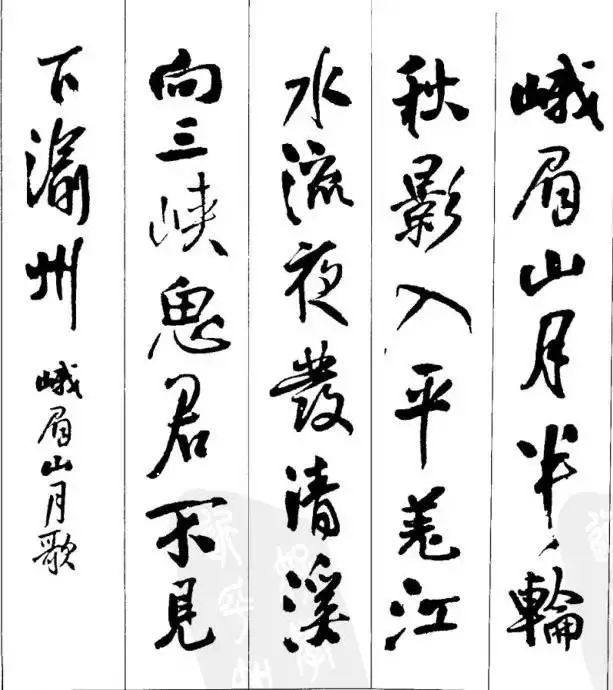 峨眉山月半輪
秋影入平羌江
水流夜發清溪
向三峽思君不見
下渝州
峨眉山月歌